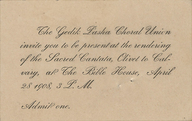 The Gedik Pasha Choral Union
invite you to be present at the rendering
of the Sacred Cantata, Olivet to Cal-
vary, at The Bible House, April
28 1908, 3 P. M.
Admit one.